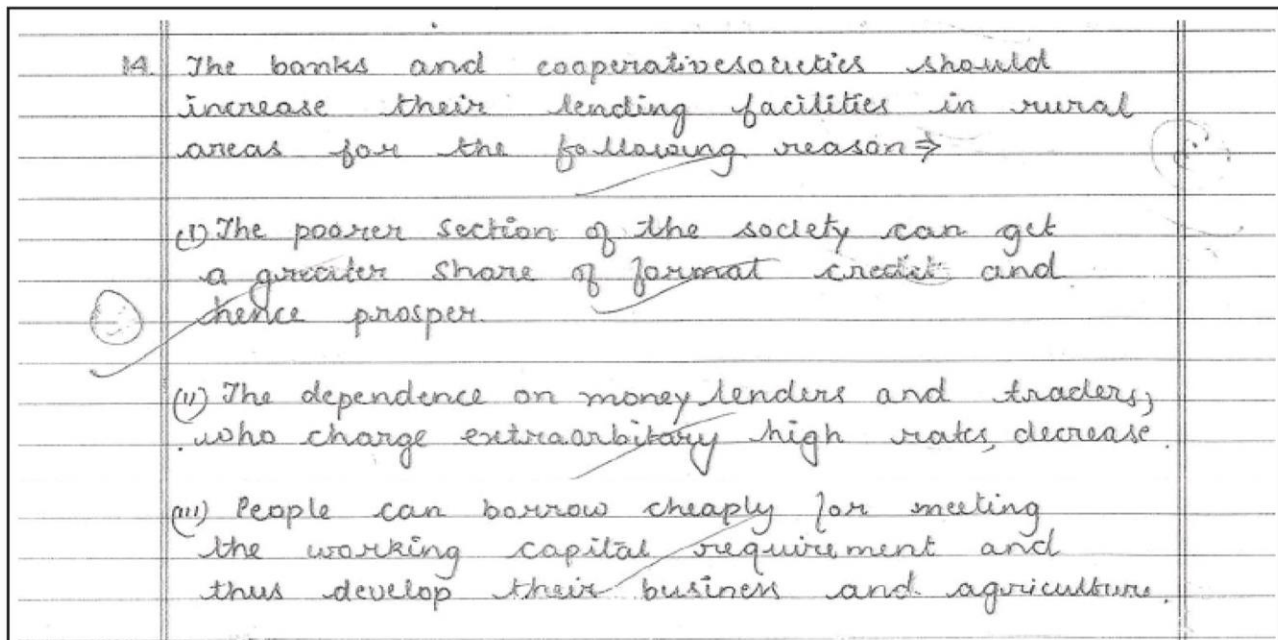 14. The banks and cooperativesocieties should
increase their lending facilities in rural
areas for the following reason⇒
(I) The poorer section of the society can get
a greater share of formal credit and
hence prosper.
(II) The dependence on money lenders and traders,
who charge extraarbitary high rates, decrease.
(III) People can borrow cheaply for meeting
the working capital requirement and
thus develop their business and agriculture.